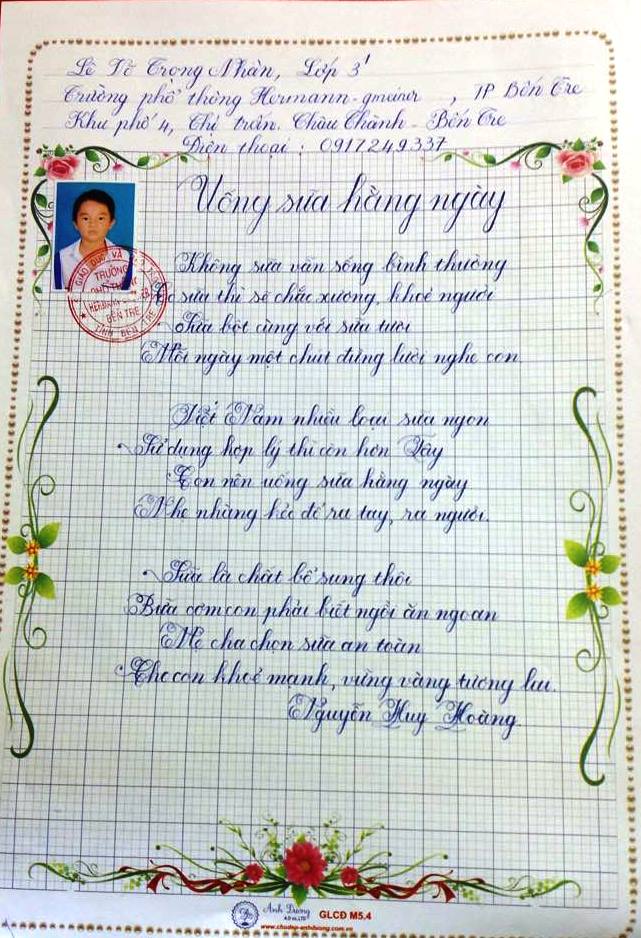 Lê Tô Trọng Nhân, Lớp 3¹
Trường phổ thông Hermann-gmeiner, TP Bến Tre
Khu phố 4, Thị trấn. Châu Thành - Bến Tre
Điện thoại: 0917249337
Uống sữa hằng ngày
GIÁO DỤC VÀ
TRƯỜNG
BẾN TRE
TỈNH BẾN TRE
Không sữa vẫn sống bình thường
Có sữa thì sẽ chắc xương, khoẻ người
Sữa bột cùng với sữa tươi
Mỗi ngày một chút đừng lười nghe con
Việt Nam nhiều loại sữa ngon
Sử dụng hợp lý thì còn hơn Tây
Con nên uống sữa hằng ngày
Nhẹ nhàng kéo đổ ra tay, ra người.
Sữa là chất bổ sung thôi
Bữa cơm con phải biết ngồi ăn ngoan
Mẹ cha chọn sữa an toàn
Cho con khoẻ mạnh, vững vàng tương lai.
Nguyễn Huy Hoàng
Anh Dương
GLCĐ M5.4
www.chudep-anhduong.com.vn